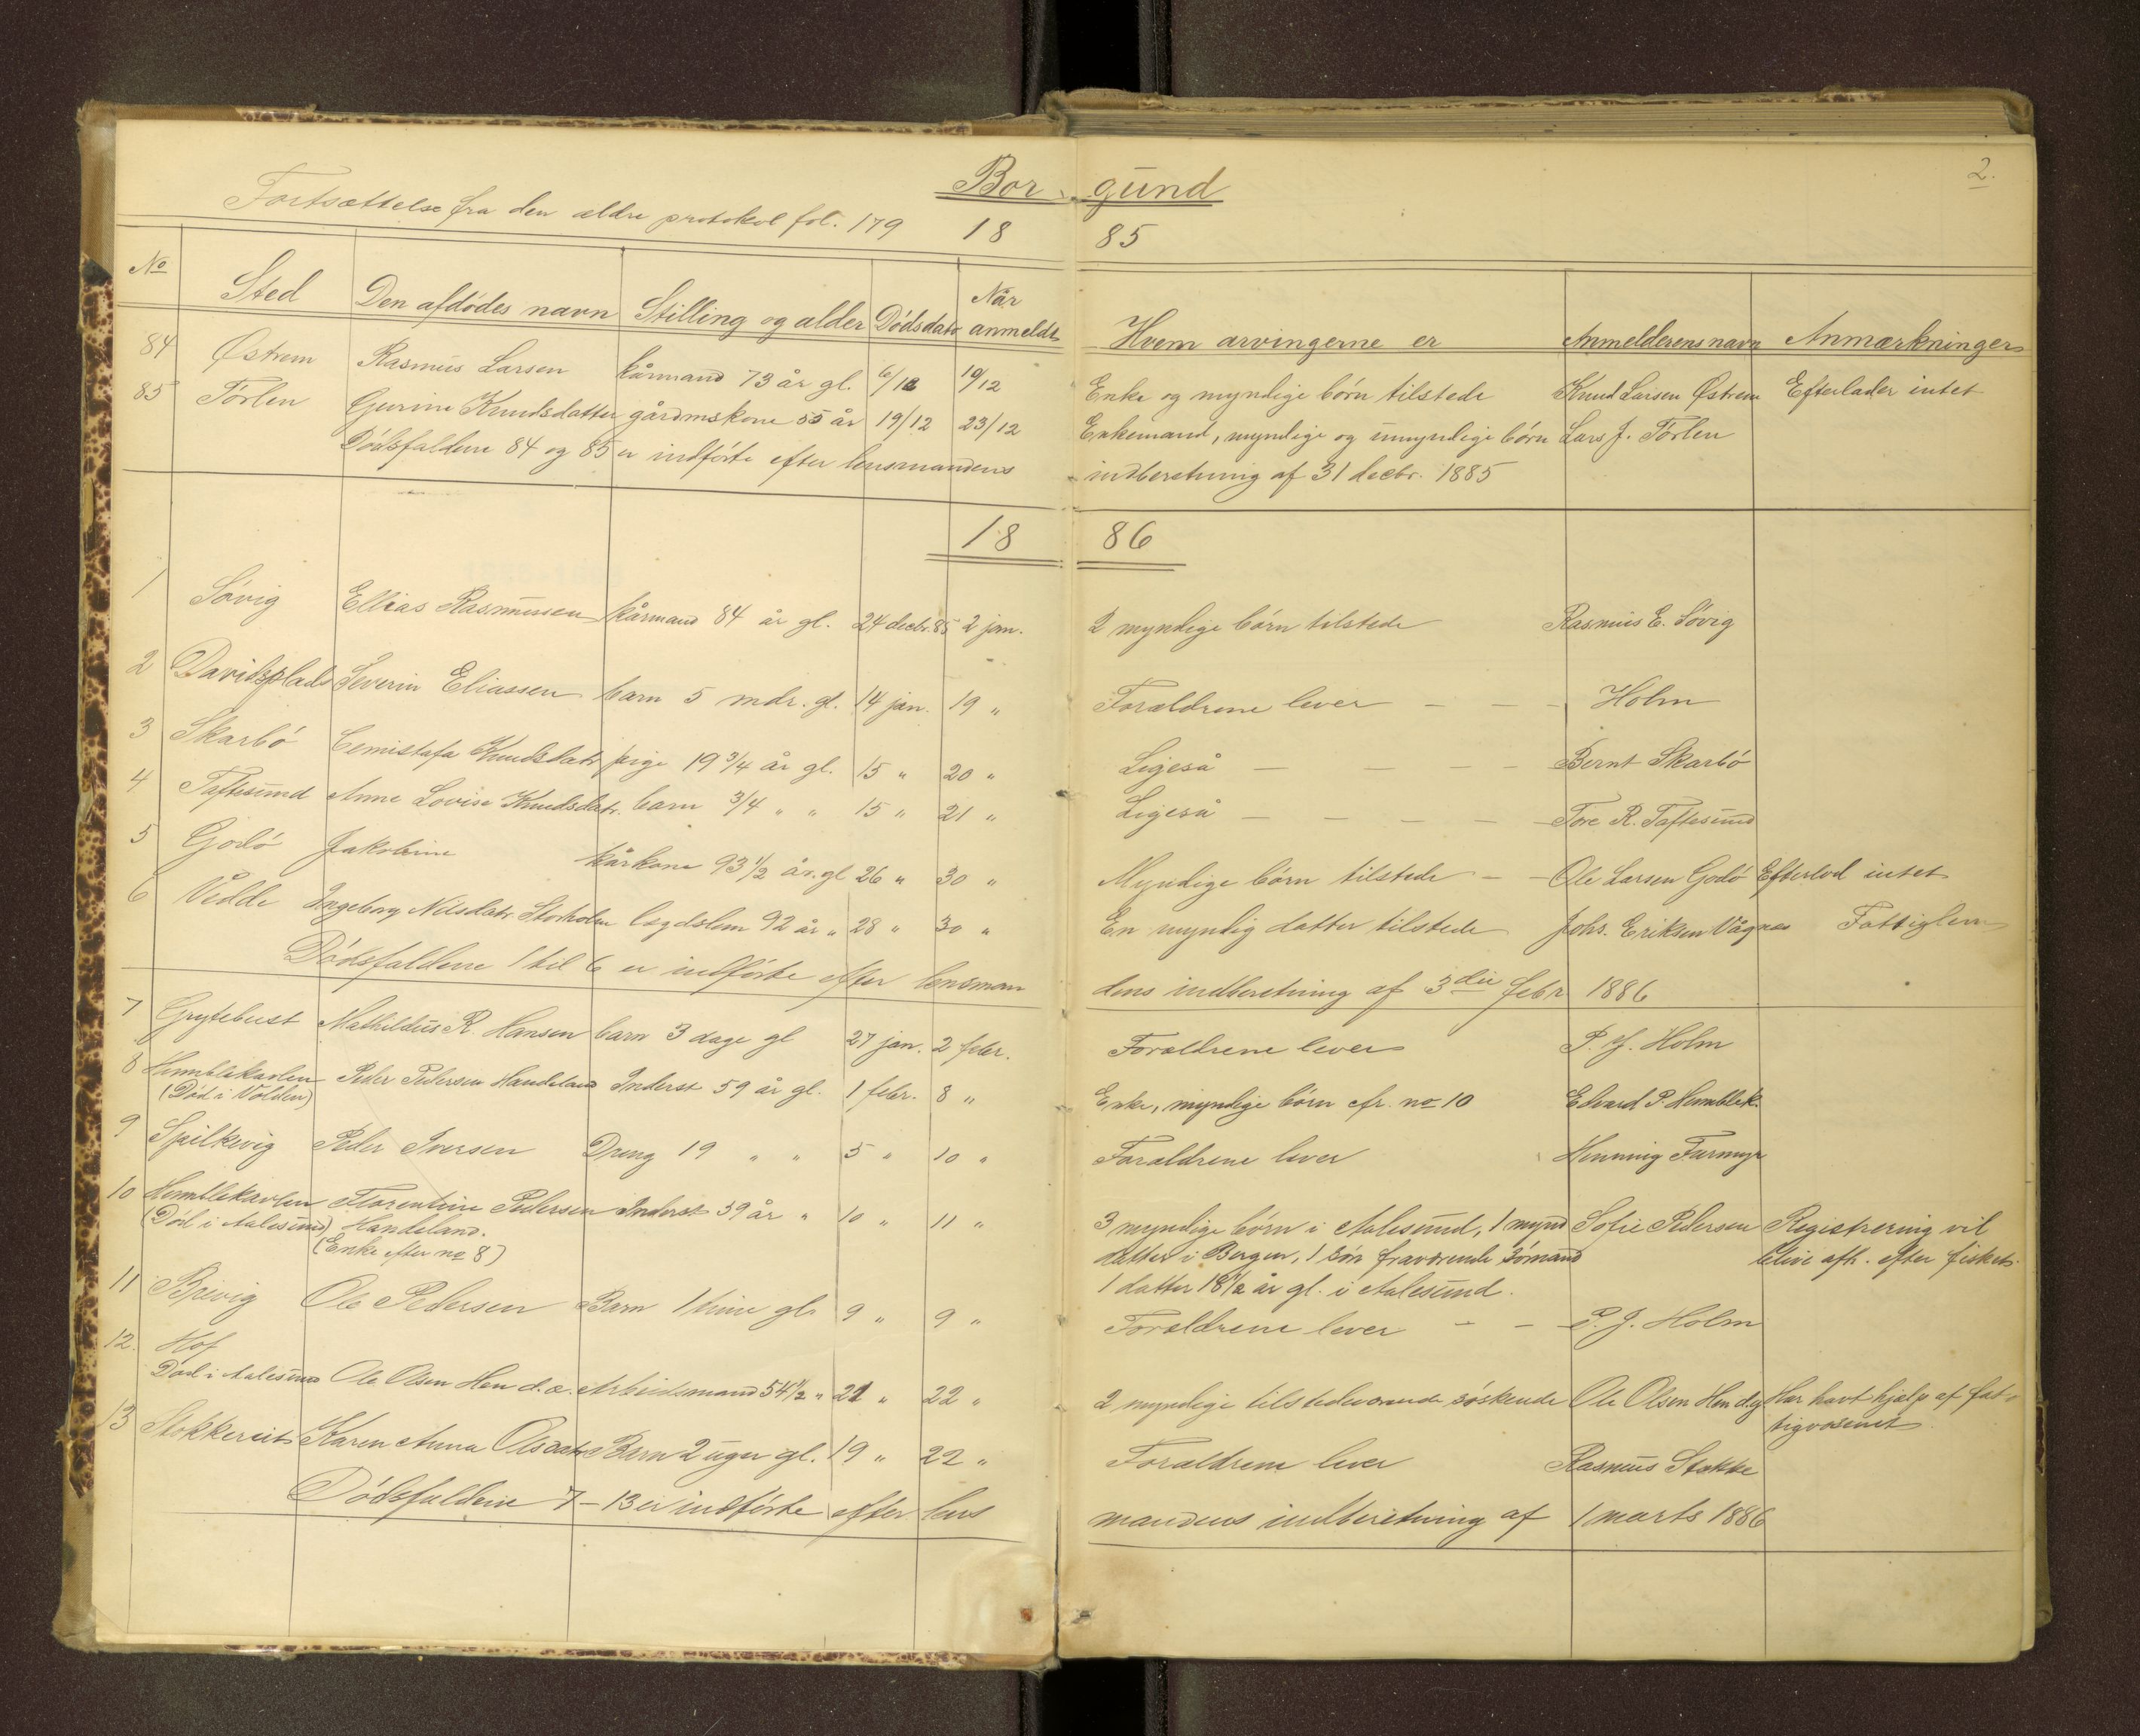 Bor gund
2.
Fortsættelse fra den ældre protokol fol. 179
18 85
No Sted Den afdødes navn Stilling og alder Dødsdato Når anmeldt Hvem arvingerne er Anmelderens navn Anmærkninger
84 Østrem Rasmus Larsen kårmand 73 år gl. 6/12 10/12 Enke og myndige børn tilstede Knud Larsen Østrem Efterlader intet
85 Tørlen Gurine Knudsdatter gårdmskone 55 år 19/12 23/12 Enkemand, myndige og umyndige børn Lars J. Tørlen
Dødsfaldene 84 og 85 er indførte efter lensmandens indberetning af 31 decbr. 1885
18 86
1 Søvig Ellias Rasmussen kårmand 84 år gl. 24 decbr. 85 2 jan. 2 myndige børn tilstede Rasmus E. Søvig
2 Davidsplads Severin Eliassen barn 5 mdr. gl. 14 jan. 19 " Forældrene lever — — — Holm
3 Skarbø Knudsdatr pige 19 3/4 år gl. 15 " 20 " Ligeså — — — — Bernt Skarbø
4 Taftesund Anne Lovise Knudsdatr. barn 3/4 " " 15 " 21 " Ligeså — — — — — Tore R. Taftesund
5 Godø Jakobine kårkone 93 1/2 år. gl 26 " 30 " Myndige børn tilstede — — Ole Larsen Godø Efterlod intet
6 Vedde Ingeborg Nilsdatr Storholm lægdslem 92 år " 28 " 30 " En myndig datter tilstede Johs. Eriksen Vågnes Fattiglem
Dødsfaldene 1 til 6 er indførte efter lensman dens indberetning af 3die febr 1886
7 Grytebust Mathildus R. Hansen barn 3 dage gl 27 jan. 2 febr. Forældrene lever P. J. Holm
8 Humblekavlen Peder Pedersen Handeland Inderst 59 år gl. 1 febr. 8 " Enke, myndige børn cfr. no 10 Edvard P. Humblek.
(Død i Volden)
9 Spilkevig Peder Iversen Dreng 19 " " 5 " 10 " Forældrene lever Henning Furmyr
10 Humblekavlen Florentine Pedersen Inderst 59 år " 10 " 11 " 3 myndige børn i Aalesund, 1 mynd Sofie Pedersen Registrering vil
(Død i Aalesund) Handeland. datter i Bergen, 1 søn fraværende sømand blive afh. efter fisket.
(Enke efter no 8) 1 datter 18 1/2 år gl. i Aalesund.
11 Breivig Ole Pedersen Barn 1 time gl. 9 " 9 " Forældrene lever — — P. J. Holm
12. Hof
Død i Aalesund Ole Olsen Hen d. æ. Arbeidsmand 54 1/2 " 21 " 22 " 2 myndige tilstedeværende søskende Ole Olsen Hen d.y. Har havt hjælp af fat-
tigvæsenet.
13 Stokkereit Karen Anna Olsdatr Barn 2 uger gl. 19 " 22 " Forældrene lever Rasmus Stokke
Dødsfaldene 7 – 13 er indførte efter lens mandens indberetning af 1 marts 1886